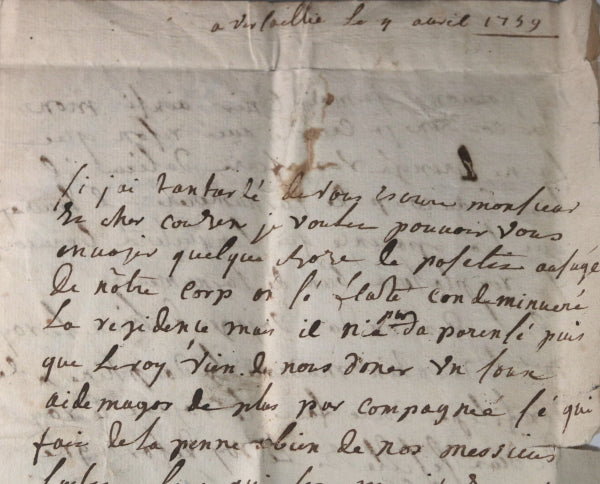 a versaillie le 9 avril 1759
si j'ai tant tardé de vous escrire monsieur
et cher couzen je voulez pouvoir vous
envoier quelque choze de positis au sujé
de nôtre corp on sé flaté con deminueré
la rezidence mais il ni a pas da parensé puis
que le roy vien de nous doner un sous
aide major de plus par compagnie sé qui
fait de la penne a bien de nos messieurs